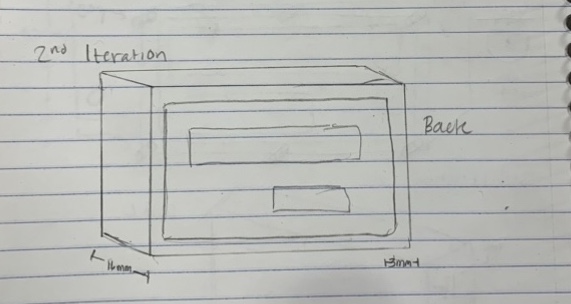 2nd Iteration
Back
16mm
3mm